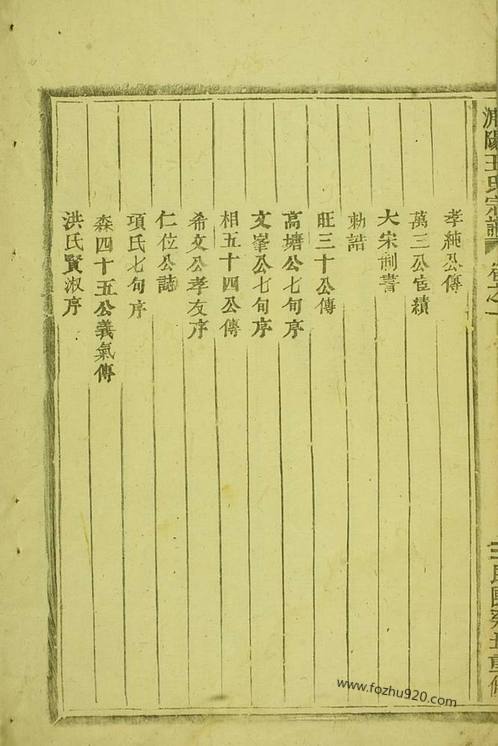 浦陽王氏宗譜 卷之一
孝純公傳
萬三公宦績
大宋制書
勅誥
旺三十公傳
高塘公七旬序
文峯公七旬序
相五十四公傳
希文公孝友序
仁位公誌
項氏七旬序
森四十五公義氣傳
洪氏賢淑序
www.fozhu920.com